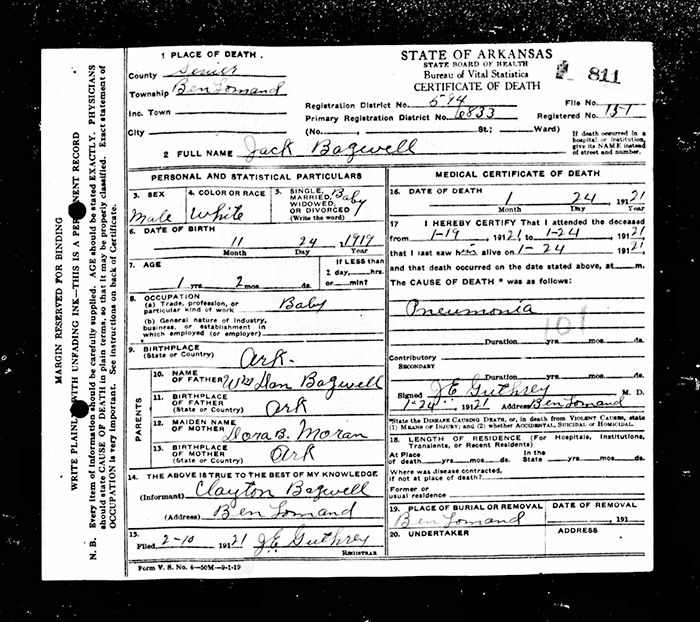 1 PLACE OF DEATH.
County Sevier
Township Ben Lomand
Inc. Town
City
STATE OF ARKANSAS
STATE BOARD OF HEALTH
Bureau of Vital Statistics
CERTIFICATE OF DEATH
811
Registration District No. 594
File No.
Primary Registration District No. 6833
Registered No. 151
(No. St.; Ward)
If death occurred in a hospital or institution, give its NAME instead of street and number.
2 FULL NAME Jack Bagwell
PERSONAL AND STATISTICAL PARTICULARS
3. SEX
Male
4. COLOR OR RACE
White
5. SINGLE, MARRIED, WIDOWED, OR DIVORCED (Write the word)
Baby
6. DATE OF BIRTH
11 24, 1919
Month Day Year
7. AGE
1 yrs. 2 mos. ds.
If LESS than 2 day, hrs. or min?
8. OCCUPATION
(a) Trade, profession, or particular kind of work Baby
(b) General nature of industry, business, or establishment in which employed (or employer)
9. BIRTHPLACE
(State or Country) Ark.
PARENTS
10. NAME OF FATHER Wm Dan Bagwell
11. BIRTHPLACE OF FATHER (State or Country) Ark
12. MAIDEN NAME OF MOTHER Dora B. Moran
13. BIRTHPLACE OF MOTHER (State or Country) Ark
14. THE ABOVE IS TRUE TO THE BEST OF MY KNOWLEDGE
(Informant) Clayton Bagwell
(Address) Ben Lomand
15.
Filed, 2-10 1921 J.E. Guthrey
REGISTRAR
Form V. S. No. 4—50M—9-1-19
MEDICAL CERTIFICATE OF DEATH
16. DATE OF DEATH
1 24, 19121
Month Day Year
17 I HEREBY CERTIFY That I attended the deceased
from 1-19, 19121 to 1-24, 19121
that I last saw him alive on 1-24 19121,
and that death occurred on the date stated above, at m.
The CAUSE OF DEATH * was as follows:
Pneumonia
101
Duration yrs. mos. ds.
Contributory
SECONDARY
Duration yrs. mos. ds.
Signed J.E. Guthrey M. D.
1-24, 19121 Address Ben Lomand
*State the DISEASE CAUSING DEATH, or, in death from VIOLENT CAUSES, state (1) MEANS OF INJURY; and (2) whether ACCIDENTAL, SUICIDAL or HOMICIDAL.
18. LENGTH OF RESIDENCE (For Hospitals, Institutions, Transients, or Recent Residents)
At Place of death yrs. mos. ds. In the State yrs. mos. ds.
Where was disease contracted, if not at place of death?
Former or usual residence
19. PLACE OF BURIAL OR REMOVAL
Ben Lomand
DATE OF REMOVAL
, 191
20. UNDERTAKER
ADDRESS
MARGIN RESERVED FOR BINDING
WRITE PLAINLY WITH UNFADING INK—THIS IS A PERMANENT RECORD
N. B. Every item of information should be carefully supplied. AGE should be stated EXACTLY. PHYSICIANS
should state CAUSE OF DEATH in plain terms, so that it may be properly classified. Exact statement of
OCCUPATION is very important. See instructions on back of Certificate.